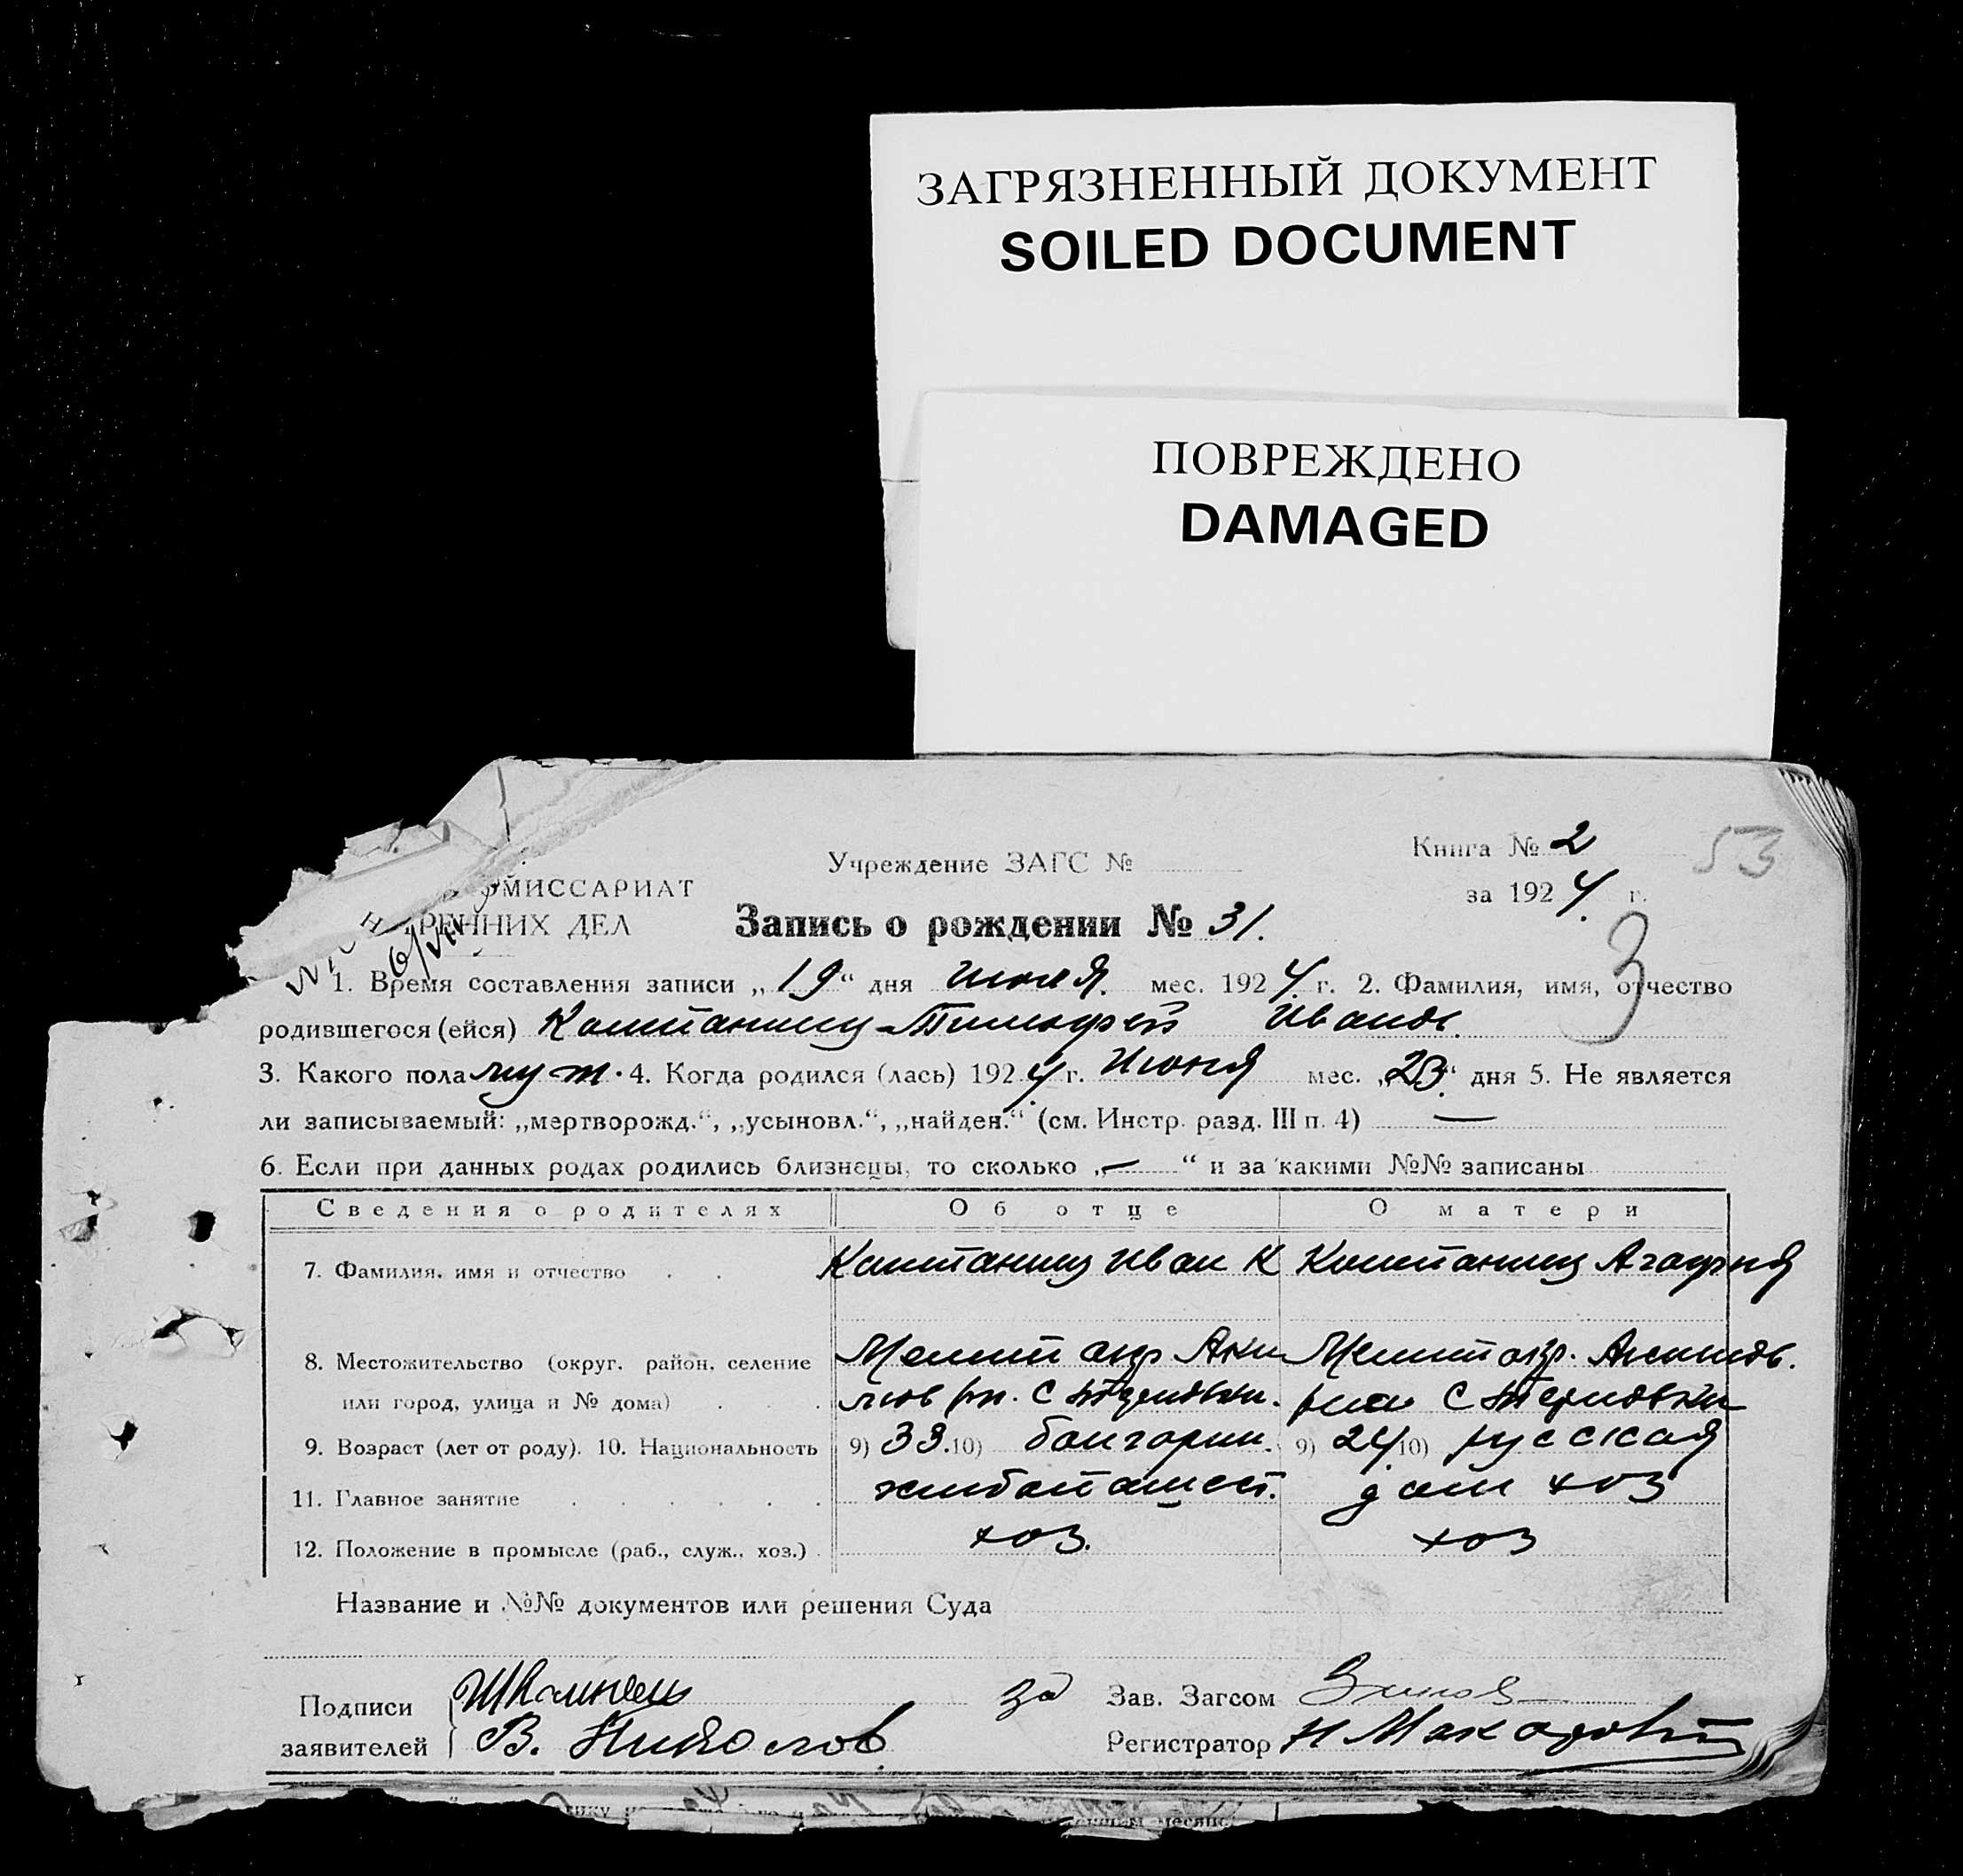 ЗАГРЯЗНЕННЫЙ ДОКУМЕНТ
SOILED DOCUMENT
ПОВРЕЖДЕНО
DAMAGED
Книга № 2
53
Учреждение ЗАГС №
за 1924 г.
ОМИССАРИАТ
РЕННИХ ДЕЛ
Запись о рождении № 31.
3
1. Время составления записи „19“ дня июля мес. 1924 г. 2. Фамилия, имя, отчество
родившегося (ейся) Тимофей Иванов.
3. Какого пола муж. 4. Когда родился (лась) 1924 г. Июня мес. „23“ дня 5. Не является
ли записываемый: „мертворожд.“, „усыновл.“, „найден.“ (см. Инстр. разд. III п. 4) —
6. Если при данных родах родились близнецы, то сколько „—“ и за какими №№ записаны
Сведения о родителях Об отце О матери
7. Фамилия, имя и отчество Иван К Агафия
8. Местожительство (округ. район, селение Мелит окр Мелит окр.
или город, улица и № дома) рн. С С
9. Возраст (лет от роду). 10. Национальность 9) 33. 10) болгарин. 9) 24 10) русская
11. Главное занятие дом хоз
12. Положение в промысле (раб., служ., хоз.) хоз. хоз
Название и №№ документов или решения Суда
Подписи за Зав. Загсом
заявителей В. Николов Регистратор Н